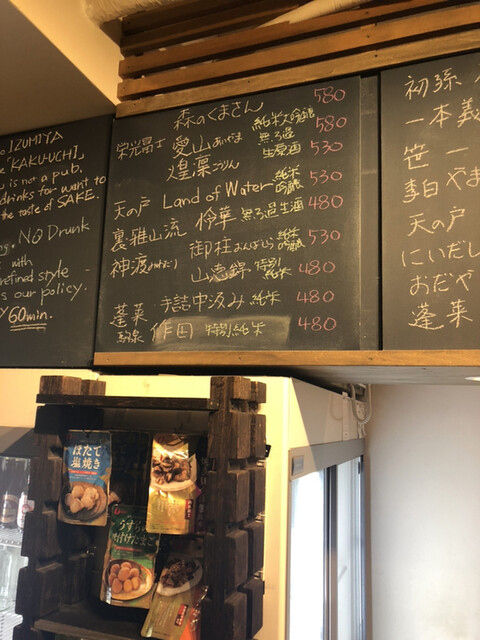 IZUMIYA
"KAKU-UCHI"
is not a pub.
drinks for want to
the taste of SAKE.
No Drunk
with
refined style
is our policy.
60min.
森のくまさん 580
栄光冨士 愛山 あいやま 純米大吟醸 無ろ過 580
煌凛 こうりん 生原酒 530
天の戸 Land of Water 純米吟醸 530
裏雅山流 怜華 無ろ過生酒 480
神渡 御柱 おんばしら 純米吟醸 530
山恵錦 特別純米 480
蓬莱 手詰中汲み 純米 480
特別純米 480
初孫
一本義
笹一
李白 やま
天の戸
にいだし
おだや
蓬莱
ほたて
塩焼き
うずら
味付けたまご